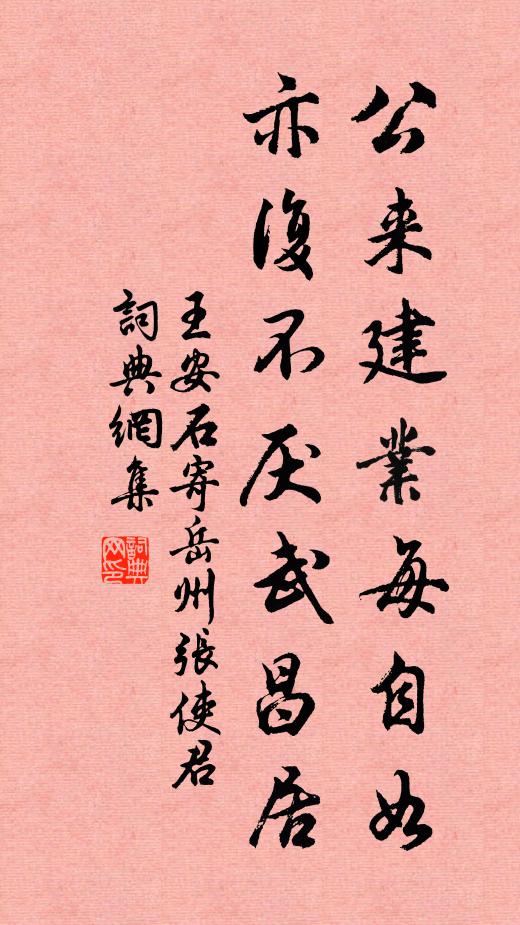 公来建業每自如
亦復不厌武昌居
王安石寄岳州張使君
詞典網集
詞典网印